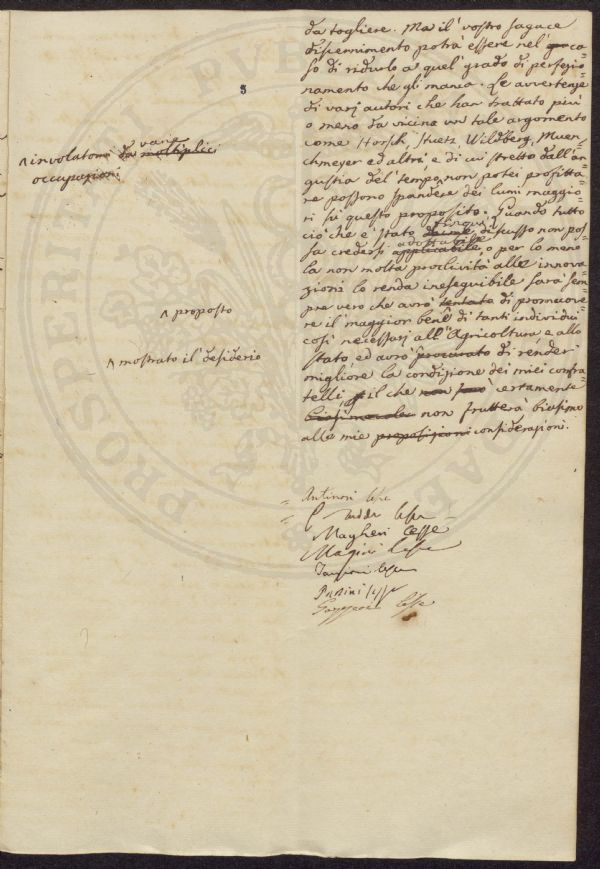 da togliere. Ma il vostro sagace
discernimento potrà essere nel ca=
so di ridurlo a quel grado di perfezio=
namento che gli manca. Le avvertenze
di varj autori che han trattato più
o meno da vicino un tale argomento
come Horsch, Stuetz, Wildberg, Muen=
chmeyer ed altri e di cui stretto dall'an=
gustia del tempo, non potei profitta=
re possono spandere dei lumi maggio=
ri su questo proposito. Quando tutto
ciò che è stato discusso non pos=
sa credersi applicabile adottabile, o per lo meno
la non molta proclività alle innova=
zioni lo renda ineseguibile sarà sem=
pre vero che avrò tentato di promuove=
re il maggior bene di tanti individui
così necessarj all'Agricoltura, e allo
stato ed avrò procurato di render
migliore la condizione dei miei confra=
telli, il che non certamente
non frutterà biasimo
alle mie proposizioni considerazioni.
^ involatomi da varie moltiplici
occupazioni
3
^ proposto
^ mostrato il desiderio
Antinori
Magheri Cesse
Magini